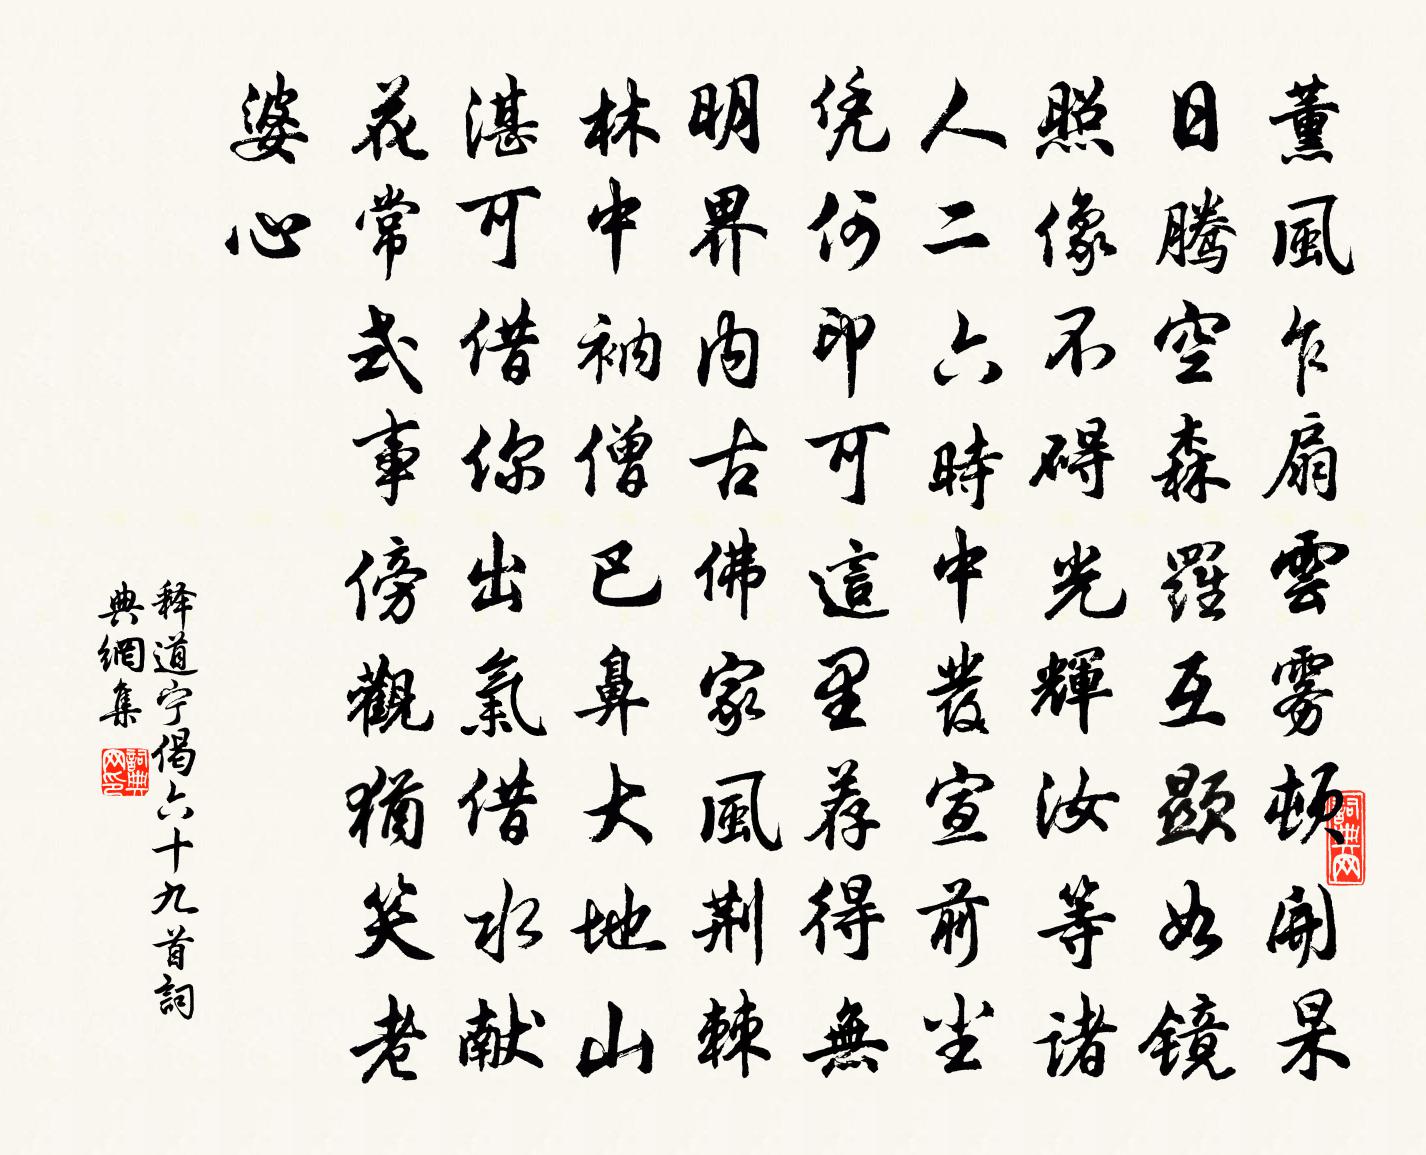 薰風乍扇雲雾頓開杲
日騰空森羅互顯如镜
照像不碍光輝汝等諸
人二六時中發宣前坐
凭何印可這里荐得無
明界内古佛家風荆棘
林中衲僧巴鼻大地山
湛可借你出氣借水献
花常式事傍觀猶笑老
婆心
释道宁偈六十九首詞
典網集
詞典网印
詞典网